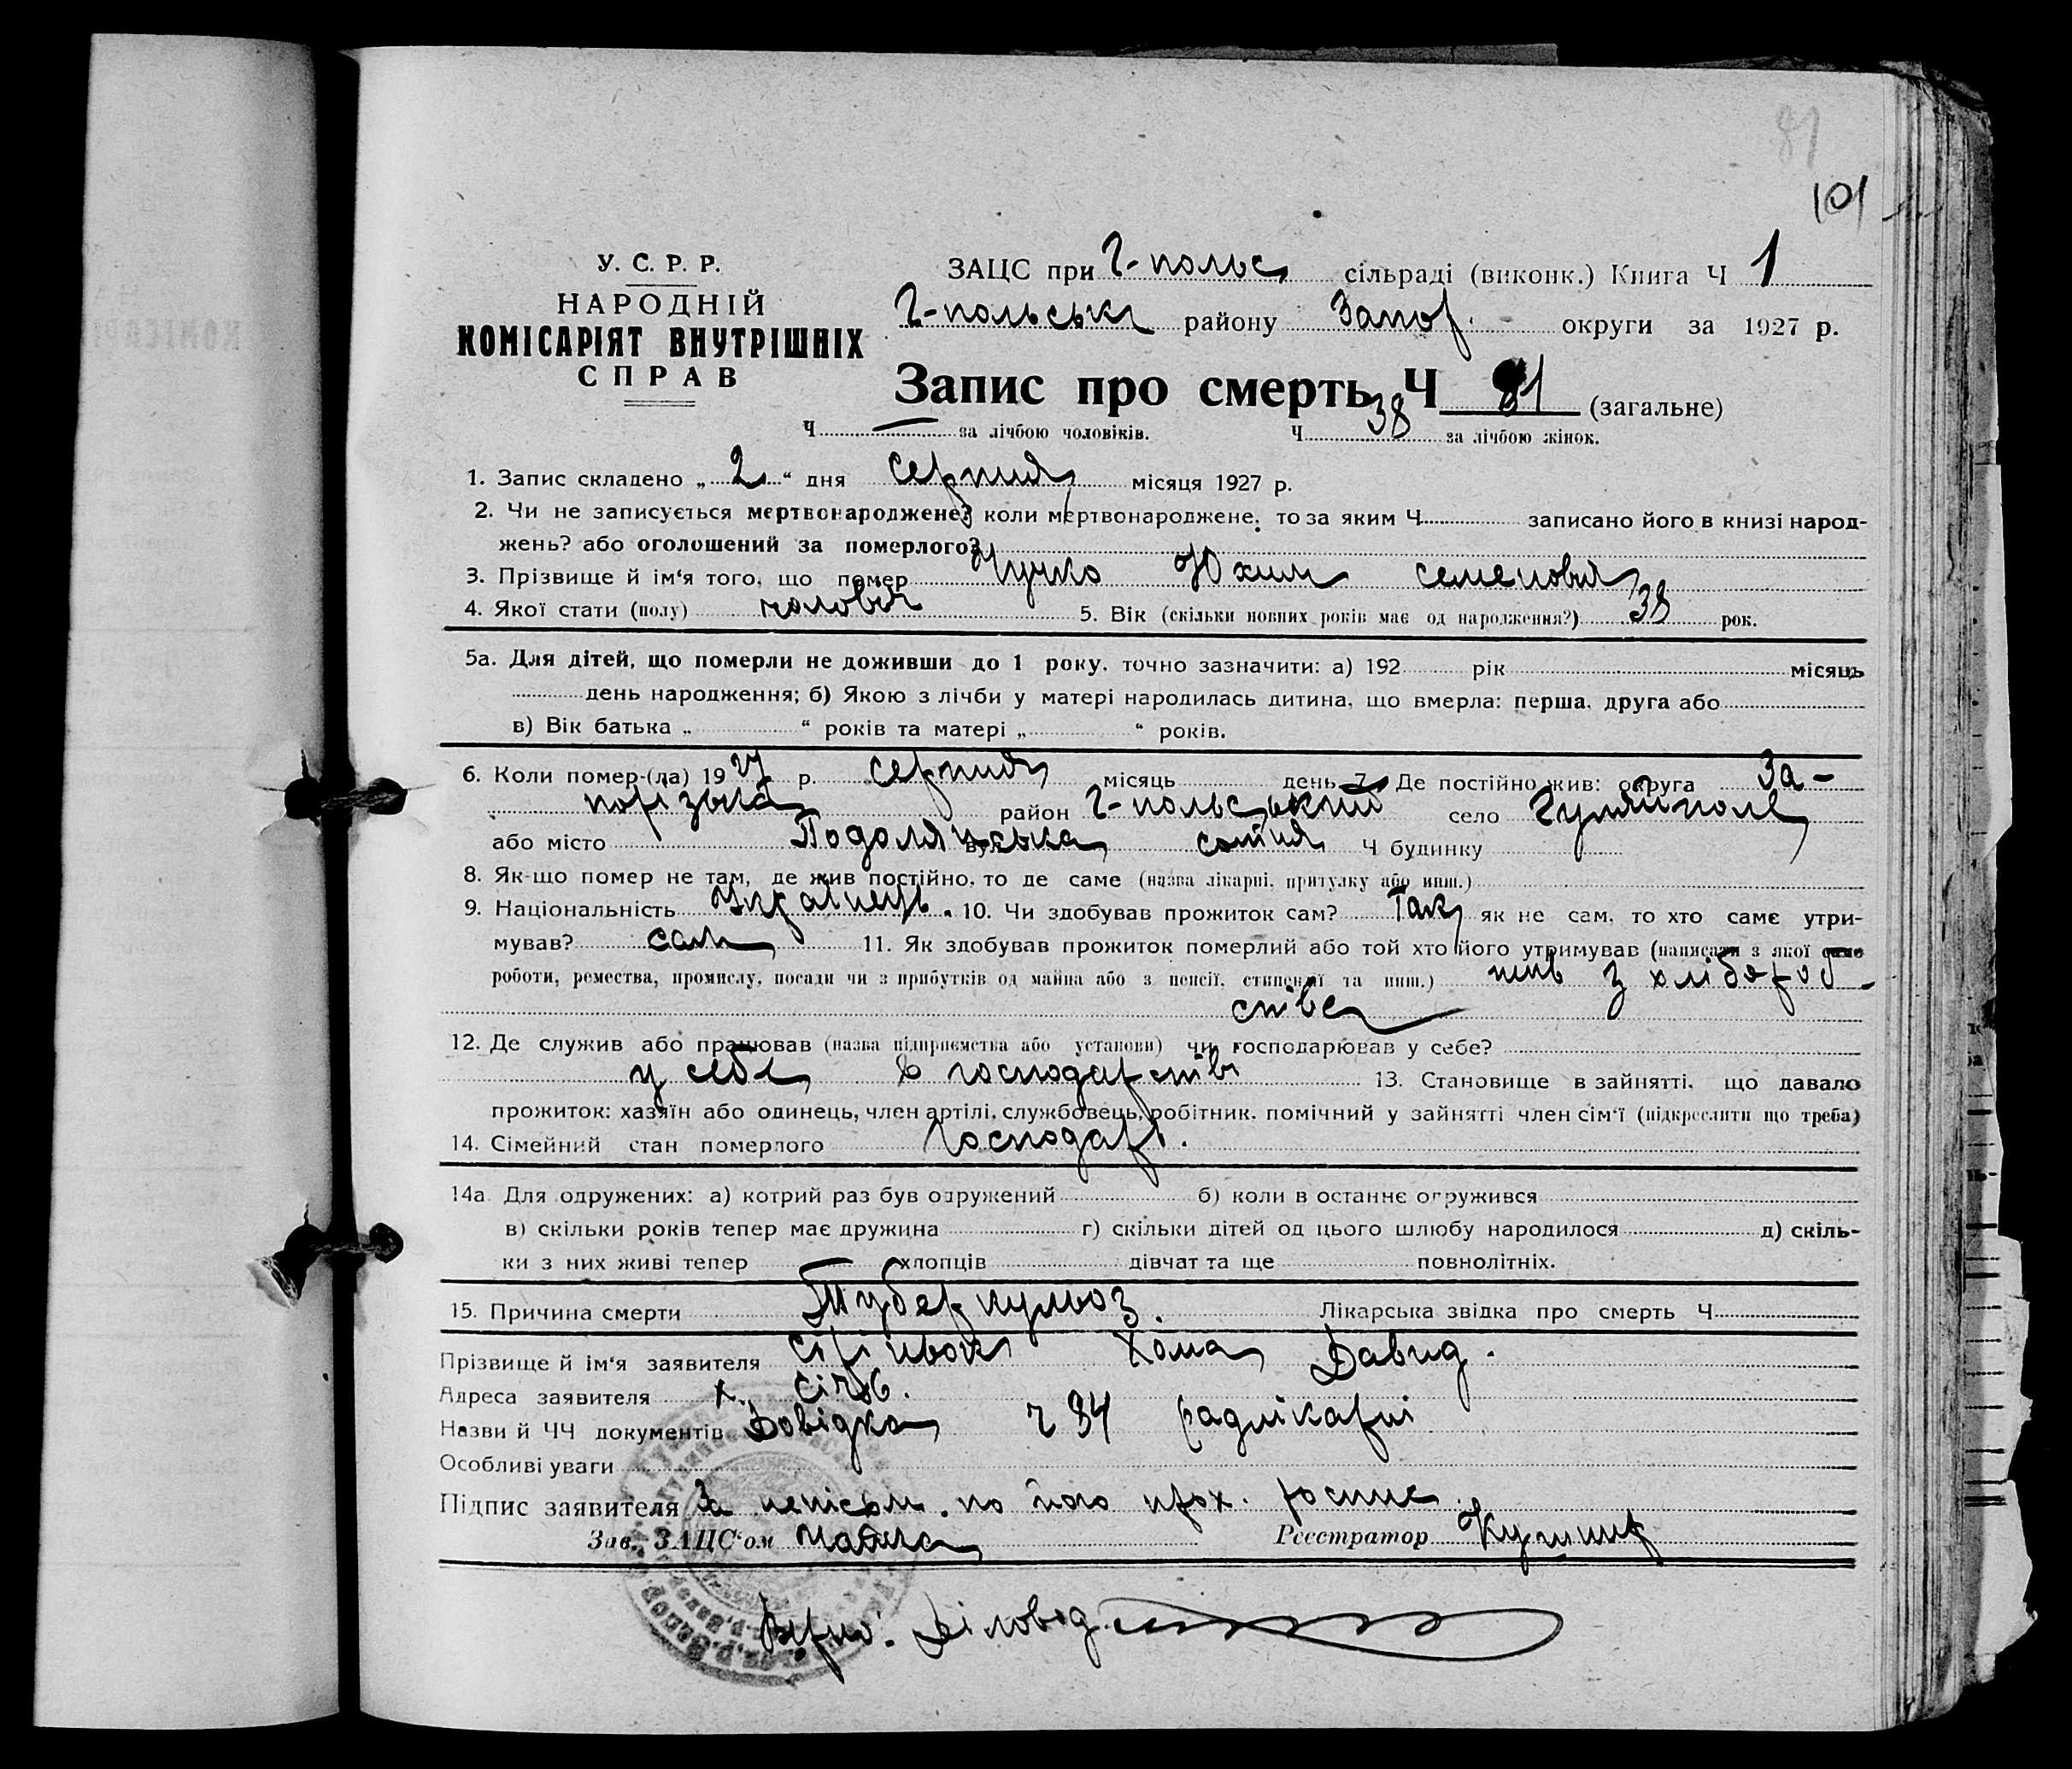 81
101
У. С. Р. Р.
НАРОДНІЙ
КОМІСАРІЯТ ВНУТРІШНІХ
СПРАВ
ЗАЦС при Г-польс сільраді (виконк.) Книга Ч 1
Г-польськ району Запор. округи за 1927 р.
Запис про смерть Ч 81 (загальне)
Ч — за лічбою чоловіків. Ч 38 за лічбою жінок.
1. Запис складено „ 2 “ дня серпня місяця 1927 р.
2. Чи не записується мертвонароджене? коли мертвонароджене, то за яким Ч записано його в книзі народ-
жень? або оголошений за померлого?
3. Прізвище й ім‘я того, що помер Юхим Семенович
4. Якої стати (полу) чоловіч 5. Вік (скільки повних років має од народження?) 38 рок.
5а. Для дітей, що померли не доживши до 1 року, точно зазначити: а) 192 рік місяць
день народження; б) Якою з лічби у матері народилась дитина, що вмерла: перша, друга або
в) Вік батька „ “ років та матері „ “ років.
6. Коли помер-(ла) 1927 р. серпня місяць день 7. Де постійно жив: округа За-
порізька район Г-польський село Гуляйполе
або місто Подолянська вул. сотня Ч будинку
8. Як-що помер не там, де жив постійно, то де саме (назва лікарні, притулку або инш.)
9. Національність Українець. 10. Чи здобував прожиток сам? Так як не сам, то хто саме утри-
мував? сам 11. Як здобував прожиток померлий або той хто його утримував (написати з якої само
роботи, ремества, промислу, посади чи з прибутків од майна або з пенсії, стипендії та инш.) жив з хлібороб-
ства
12. Де служив або працював (назва підприємства або установи) чи господарював у себе?
у себе в господарстві 13. Становище в зайнятті, що давало
прожиток: хазяїн або одинець, член артілі, службовець, робітник, помічний у зайнятті член сім‘ї (підкреслити що треба)
14. Сімейний стан померлого Господарь.
14а. Для одружених: а) котрий раз був одружений б) коли в останнє одружився
в) скільки років тепер має дружина г) скільки дітей од цього шлюбу народилося д) скіль-
ки з них живі тепер хлопців дівчат та ще повнолітніх.
15. Причина смерти Туберкульоз. Лікарська звідка про смерть Ч
Прізвище й ім‘я заявителя Хома Давид.
Адреса заявителя х.
Назви й ЧЧ документів Довідка ч 94 радлікарні
Особливі уваги
Підпис заявителя За неписьм. по його прох. роспис.
Зав. ЗАЦС‘ом Реєстратор Кушнір
Вірно: Діловод